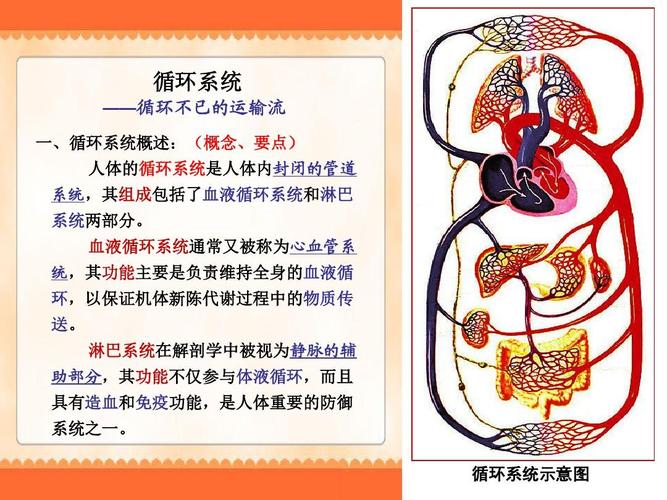 循环系统
——循环不已的运输流
一、循环系统概述：（概念、要点）
人体的循环系统是人体内封闭的管道
系统，其组成包括了血液循环系统和淋巴
系统两部分。
血液循环系统通常又被称为心血管系
统，其功能主要是负责维持全身的血液循
环，以保证机体新陈代谢过程中的物质传
送。
淋巴系统在解剖学中被视为静脉的辅
助部分，其功能不仅参与体液循环，而且
具有造血和免疫功能，是人体重要的防御
系统之一。
循环系统示意图